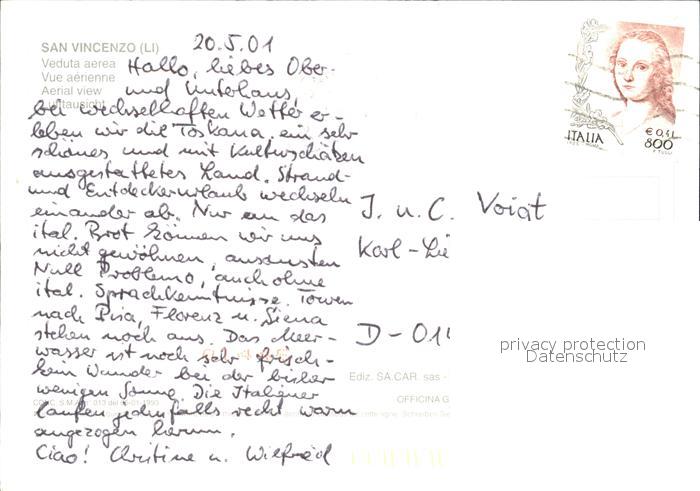 SAN VINCENZO (LI)
Veduta aerea
Vue aérienne
Aerial view
Luftansicht
20.5.01
Hallo, liebes Ober-
und Unterhaus,
bei wechselhaften Wetter er-
leben wir die Toskana, ein sehr
schönes und mit Kulturschätzen
ausgestattetes Land. Strand-
und Entdeckerurlaub wechseln
einander ab. Nur an das
ital. Brot können wir uns
nicht gewöhnen, ansonsten
Null Problemo, auch ohne
ital. Sprachkenntnisse. Touren
nach Pisa, Florenz u. Siena
stehen noch aus. Das Meer-
wasser ist noch sehr frisch -
kein Wunder bei der bisher
wenigen Sonne. Die Italiener
laufen jedenfalls recht warm
angezogen herum.
Ciao! Christine u. Wilfried
ITALIA
€ 0,41
800
J. u. C. Voigt
Karl-Lie
D-014
privacy protection
Datenschutz
Ediz. SA.CAR. sas -
OFFICINA G